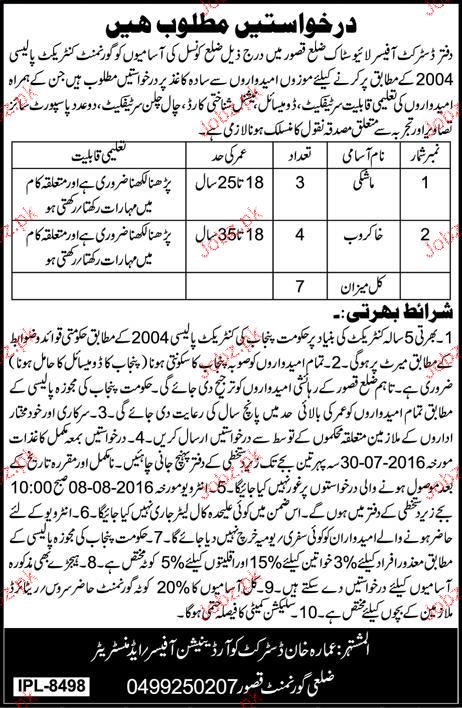 درخواستیں مطلوب ھیں
دفتر ڈسٹرکٹ آفیسر لائیوسٹاک ضلع قصور میں درج ذیل ضلع کونسل کی آسامیوں کو گورنمنٹ کنٹریکٹ پالیسی
2004 کے مطابق پر کرنے کیلئے موزوں امیدواروں سے سادہ کاغذ پر درخواستیں مطلوب ہیں جن کے ہمراہ
امیدواروں کی تعلیمی قابلیت سرٹیفکیٹ، ڈومیسائل، نیشنل شناختی کارڈ، چال چلن سرٹیفکیٹ، دو عدد پاسپورٹ سائز
تصاویر اور تجربہ سے متعلق مصدقہ نقول کا منسلک ہونا لازمی ہے۔
نمبر شمار نام آسامی تعداد عمر کی حد تعلیمی قابلیت
1 ماشکی 3 18 تا 25 سال پڑھنا لکھنا ضروری ہے اور متعلقہ کام
میں مہارات رکھتا/رکھتی ہو
2 خاکروب 4 18 تا 35 سال پڑھنا لکھنا ضروری ہے اور متعلقہ کام
میں مہارات رکھتا/رکھتی ہو
کل میزان 7
شرائط بھرتی:۔
1۔ بھرتی 5 سالہ کنٹریکٹ کی بنیاد پر حکومت پنجاب کی کنٹریکٹ پالیسی 2004 کے مطابق حکومتی قوائد و ضوابط
کے مطابق میرٹ پر ہوگی۔ 2۔ تمام امیدواروں کو صوبہ پنجاب کا سکونتی ہونا (پنجاب کا ڈومیسائل کا حامل ہونا)
ضروری ہے۔ تاہم ضلع قصور کے رہائشی امیدواروں کو ترجیح دی جائے گی۔ حکومت پنجاب کی مجوزہ پالیسی کے
مطابق تمام امیدواروں کو عمر کی بالائی حد میں پانچ سال کی رعایت دی جائے گی۔ 3۔ سرکاری اور خودمختار
اداروں کے ملازمین متعلقہ محکموں کے توسط سے درخواستیں ارسال کریں۔ 4۔ درخواستیں بمعہ مکمل کاغذات
مورخہ 30-07-2016 سہ پہر تین بجے تک زیر دستخطی کے دفتر پہنچ جانی چاہئیں۔ نامکمل اور مقررہ تاریخ کے
بعد موصول ہونے والی درخواستوں پر غور نہیں کیا جائیگا۔ 5۔ انٹرویو مورخہ 08-08-2016 صبح 10:00
بجے زیر دستخطی کے دفتر میں ہوں گے۔ اس ضمن میں کوئی علیحدہ کال لیٹر جاری نہیں کیا جائیگا۔ 6۔ انٹرویو کے لئے
حاضر ہونے والے امیدواران کو کوئی سفری/یومیہ خرچ نہیں دیا جائے گا۔ 7۔ حکومت پنجاب کی مجوزہ پالیسی کے
مطابق معذور افراد کیلئے 3% خواتین کیلئے 15% اور اقلیتوں کیلئے 5% کوٹہ مختص ہے۔ 8۔ ہیجڑے بھی مذکورہ
آسامیوں کیلئے درخواستیں دے سکتے ہیں۔ 9۔ کل آسامیوں کا 20% کوٹہ گورنمنٹ حاضر سروس/ریٹائرڈ
ملازمین کے بچوں کیلئے مختص ہے۔ 10۔ سلیکشن کمیٹی کا فیصلہ حتمی ہوگا۔
المشتہر: عمارہ خان ڈسٹرکٹ کوآرڈینیشن آفیسر/ایڈمنسٹریٹر
ضلعی گورنمنٹ قصور 0499250207
IPL-8498
Jobz.pk